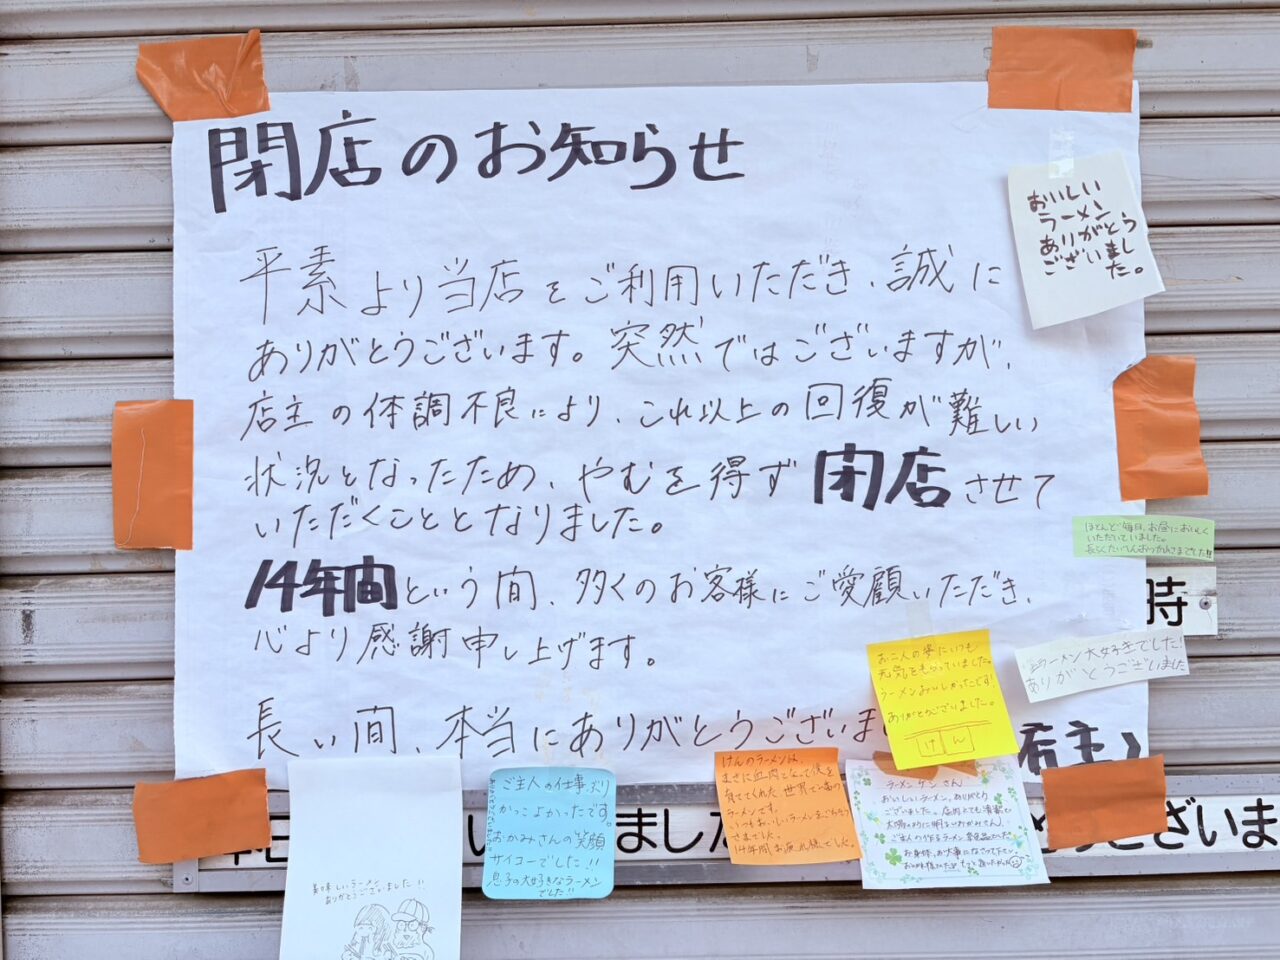 閉店のお知らせ
平素より当店をご利用いただき、誠に
ありがとうございます。突然ではございますが、
店主の体調不良により、これ以上の回復が難しい
状況となったため、やむを得ず閉店させて
いただくこととなりました。
14年間という間、多くのお客様にご愛顧いただき、
心より感謝申し上げます。
長い間、本当にありがとうございま
店主
おいしい
ラーメン
ありがとう
ございまし
た。
ほとんど毎日、お昼においしく
いただいていました。
時
ラーメン大好きでした!
ありがとうございました
お二人の姿にいつも
元気をもらっていました。
ラーメンおいしかったです!
ありがとうございました。
けん
けんのラーメンは、
まさに血肉となって僕を
育ててくれた世界で一番の
ラーメンです。
いつもおいしいラーメンをごちそう
さまでした。
14年間お疲れ様でした。
ラーメンケンさん
おいしいラーメン、ありがとう
ございました。店内とても清潔で
太陽のように明るいおかみさん、
ご主人の作るラーメン
お身体、お大事になさって下さい。
ご主人の仕事ぶり
かっこよかったです。
おかみさんの笑顔
サイコーでした!!
息子の大好きなラーメン
でした!!
美味しいラーメン
ありがとうございました!!
ました
ございま